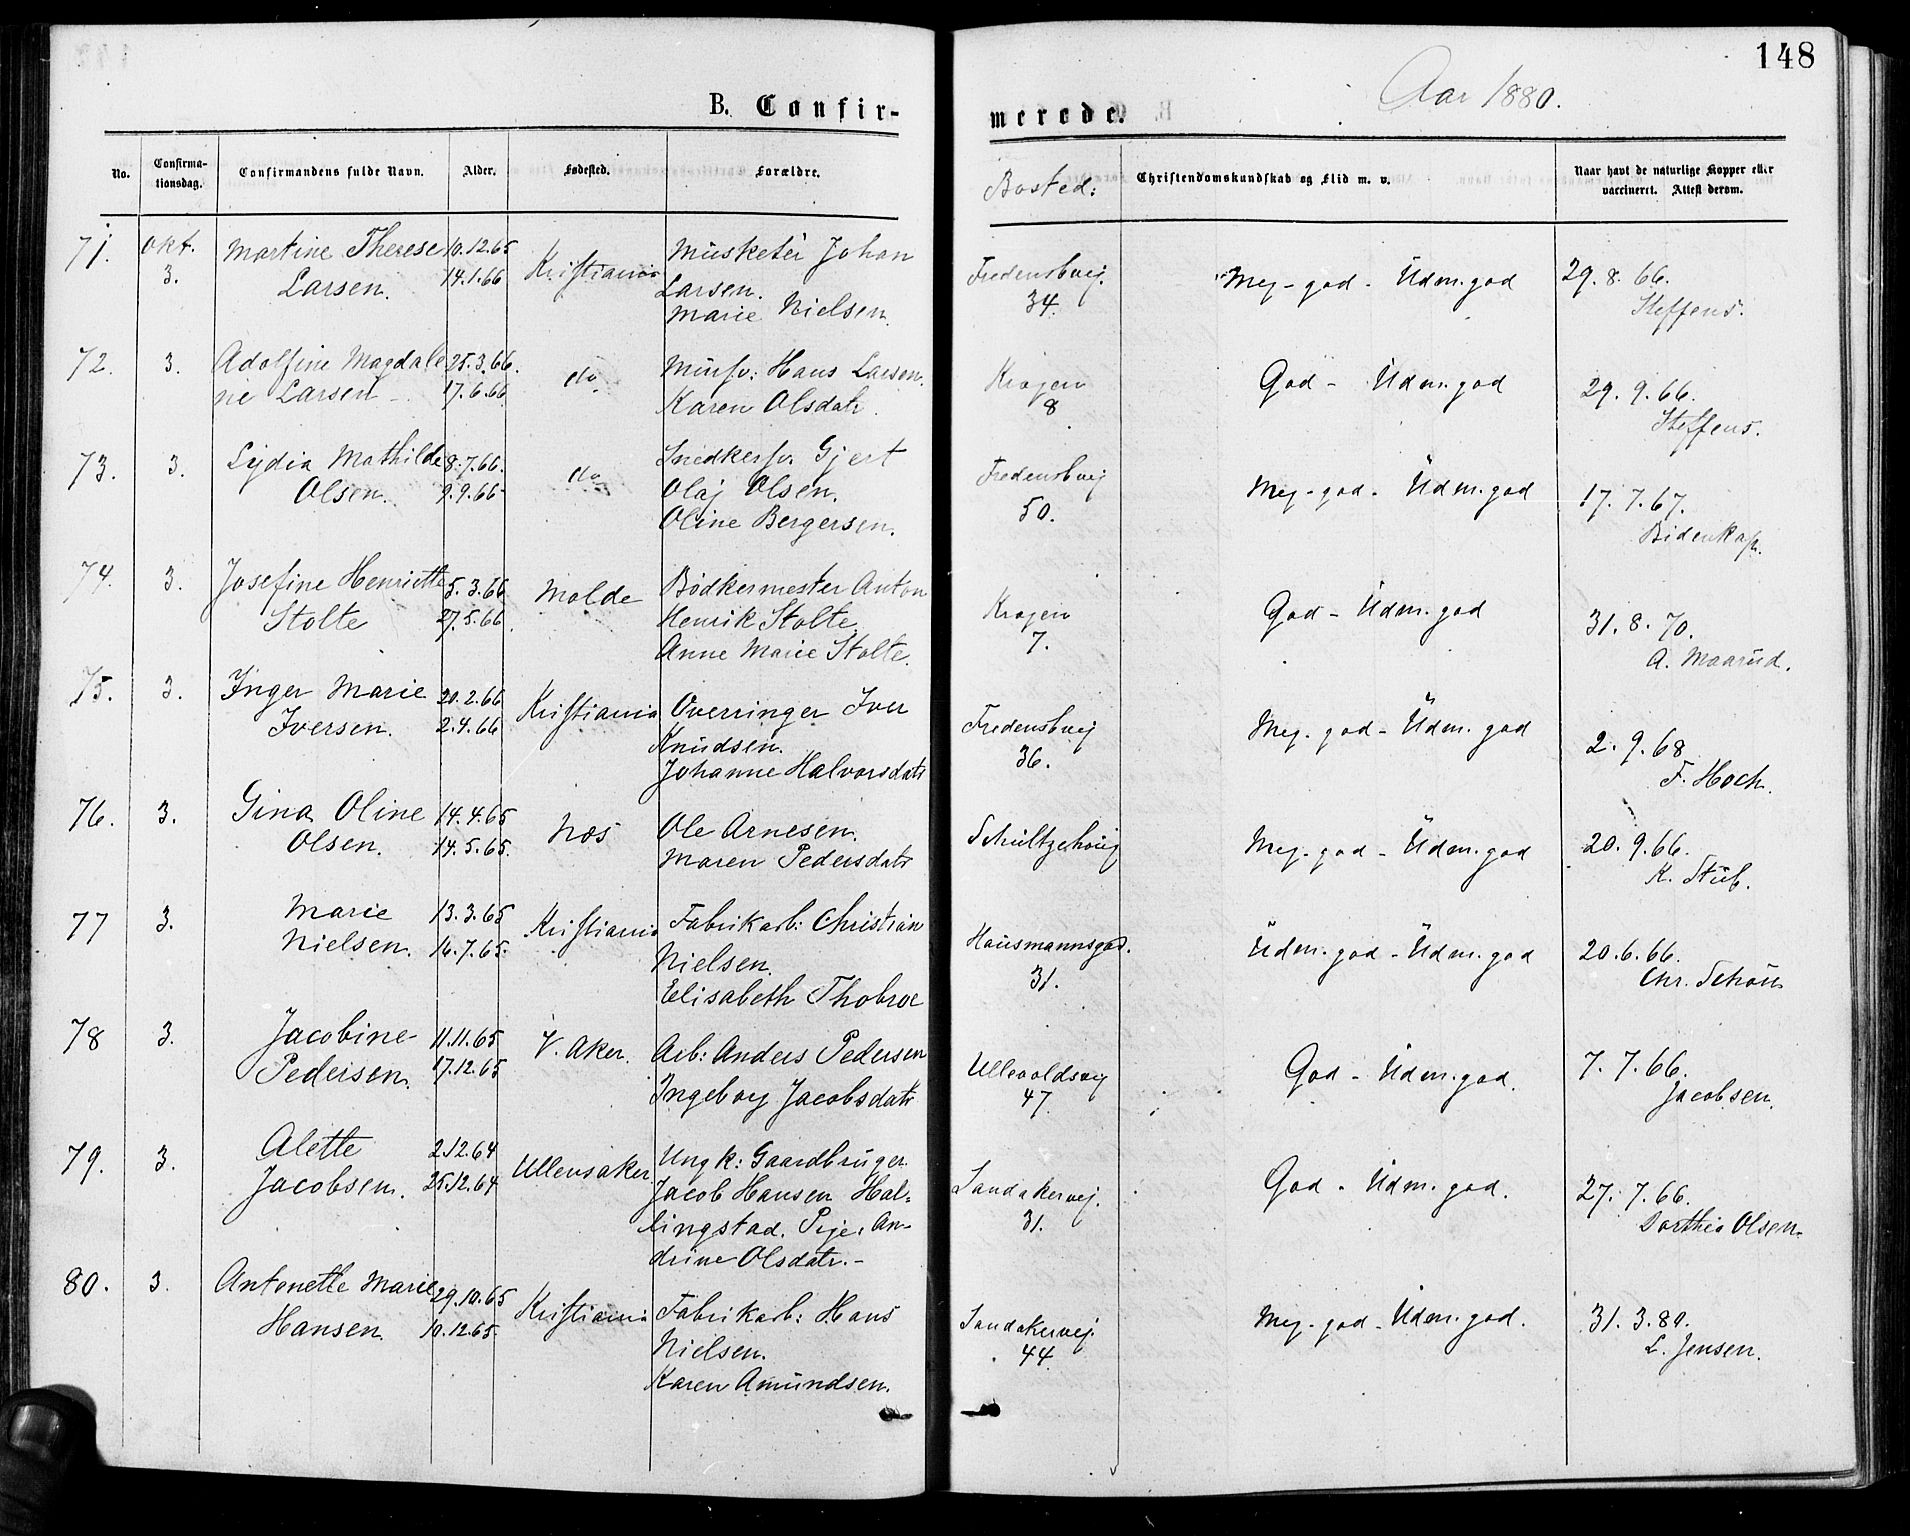 148
Aar 1880.
B. Confir-
merede.
No.
Confirma-
tionsdag.
Confirmandens fulde Navn.
Alder.
Fødested.
Forældre.
Bosted:
Christendomskundskab og Flid m. v.
Naar havt de naturlige Kopper eller
vaccineret. Attest derom.
71. Okt. Martine Therese 10.12.65 Kristiania Musketér Johan Fredensbvej. Meg-god - Üdm.god 29.8.66.
3. Larsen. 14.1.66 Larsen. 34. Steffens.
Marie Nielsen.
72. 3. Adolfine Magdale 25.3.66. do Hans Larsen. Krogen God - Üdm.god 29.9.66.
ne Larsen - 17.6.66 Karen Olsdatr. 8 Steffens.
73. 3. Lydia Mathilde 8.7.66. do Snedkersv. Gjert Fredensbvej Meg-god - Üdm.god 17.7.67.
Olsen. 9.9.66 Olaj Olsen. 50. Bidenkap.
Oline Bergersen.
74. 3. Josefine Henriette 5.3.66 Molde Bødkermester Anton Krogen God - Üdm.god 31.8.70.
Stolte 27.5.66. Henrik Stolte. 7. A. Maarud.
Anne Marie Stolte.
75. 3. Inger Marie 20.2.66 Kristiania Overringer Iver Fredensbvej Meg.god - Üdm.god 2.9.68
Iversen. 2.4.66 Knudsen. 36. F. Hoch.
Johanne Halvorsdatr
76. 3. Gina Oline 14.4.65 Næs Ole Arnesen. Schultzehaug Meg.god - Üdm.god 20.9.66.
Olsen. 14.5.65. Maren Pedersdatr K. Stub.
77 3. Marie 13.3.65 Kristiania Fabrikarb: Christian Hausmannsgad. Üdm.god - Üdm.god 20.6.66.
Nielsen. 16.7.65. Nielsen. 31. Chr. Schou
Elisabeth Thobroe
78 3. Jacobine 11.11.65 V. Aker. Arb: Anders Pedersen Ullevoldsvej God - Üdm.god. 7.7.66.
Pedersen. 17.12.65 Ingeborg Jacobsdatr 47. Jacobsen.
79. 3. Alette 2.12.64 Ullensaker Ungk: Gaardbruger Sandakervej. God - Üdm.god. 27.7.66.
Jacobsen. 25.12.64 Jacob Hansen Hal- 31. Dorthea Olsen.
lingstad. Pige: An-
drine Olsdatr.-
80. 3. Antonette Marie 29.10.65 Kristiania Fabrikarb: Hans Sandakervej. Meg.god - Üdm.god. 31.3.80.
Hansen. 10.12.65. Nielsen. 44. L. Jensen.
Karen Amundsen.